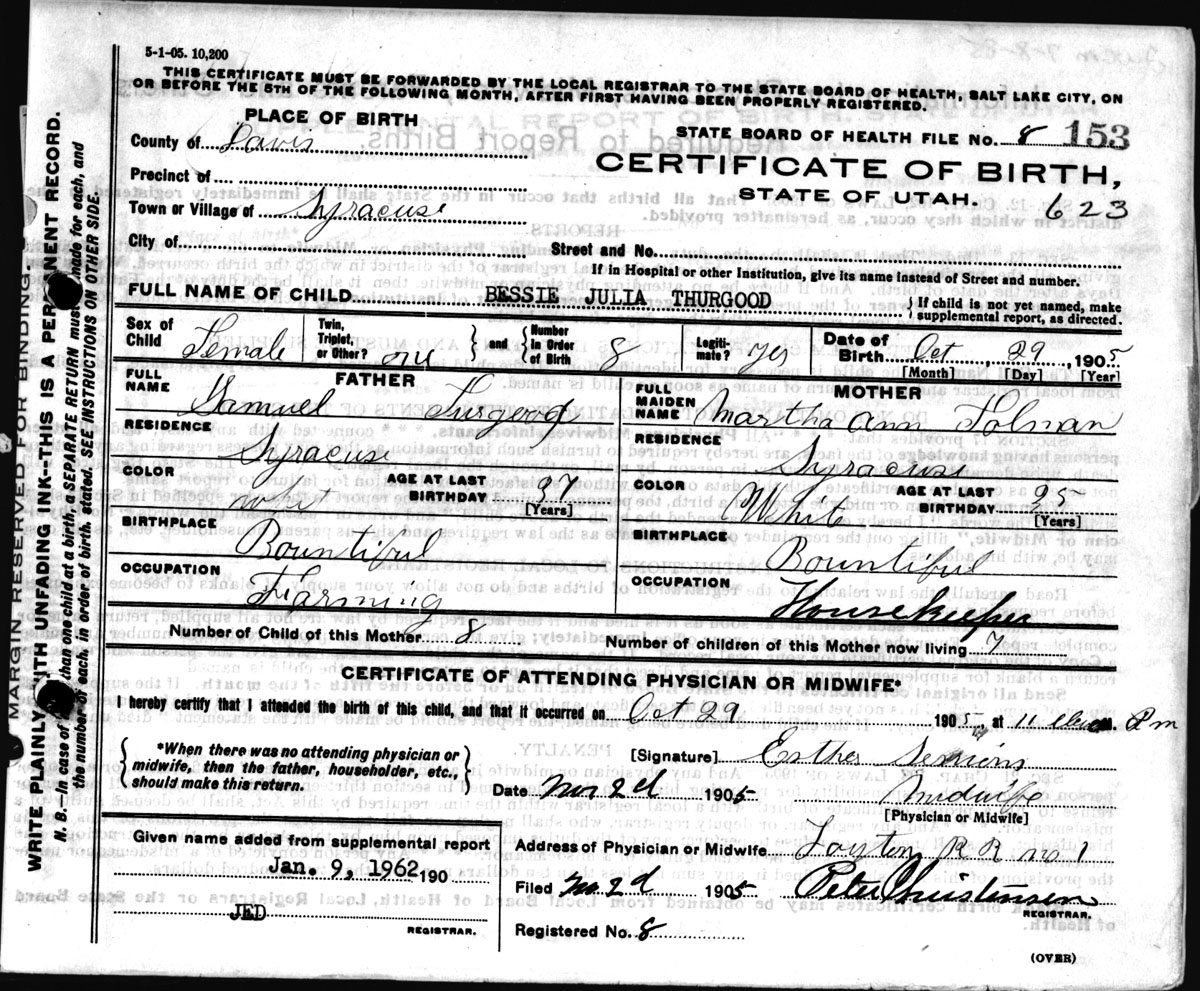 5-1-05. 10,200
THIS CERTIFICATE MUST BE FORWARDED BY THE LOCAL REGISTRAR TO THE STATE BOARD OF HEALTH, SALT LAKE CITY, ON
OR BEFORE THE 5TH OF THE FOLLOWING MONTH, AFTER FIRST HAVING BEEN PROPERLY REGISTERED.
PLACE OF BIRTH
STATE BOARD OF HEALTH FILE No. 8 153
County of Davis
CERTIFICATE OF BIRTH,
Precinct of
STATE OF UTAH.
623
Town or Village of Syracuse
City of
Street and No.
If in Hospital or other Institution, give its name instead of Street and number.
FULL NAME OF CHILD BESSIE JULIA THURGOOD
If child is not yet named, make supplemental report, as directed.
Sex of Child Female Twin, Triplet, or Other? one and Number in Order of Birth 8 Legitimate? yes Date of Birth Oct 29, 1905
[Month] [Day] [Year]
FATHER
FULL NAME Samuel Turgood
RESIDENCE Syracuse
COLOR AGE AT LAST BIRTHDAY 37 [Years]
BIRTHPLACE Bountiful
OCCUPATION Farming
MOTHER
FULL MAIDEN NAME Martha Ann Tolman
RESIDENCE Syracuse
COLOR White AGE AT LAST BIRTHDAY [Years]
BIRTHPLACE Bountiful
OCCUPATION Housekeeper
Number of Child of this Mother 8
Number of children of this Mother now living 7
CERTIFICATE OF ATTENDING PHYSICIAN OR MIDWIFE*
I hereby certify that I attended the birth of this child, and that it occurred on Oct 29 1905, at 11 P m
*When there was no attending physician or midwife, then the father, householder, etc., should make this return.
[Signature] Esther
Date Nov 2d 1905
Midwife
[Physician or Midwife]
Given name added from supplemental report
Jan. 9, 1962 190
JED
REGISTRAR.
Address of Physician or Midwife Layton R R no 1
Filed Nov 2d 1905 Peter Christensen
REGISTRAR.
Registered No. 8
(OVER)
MARGIN RESERVED FOR BINDING.
WRITE PLAINLY WITH UNFADING INK--THIS IS A PERMANENT RECORD.
N. B.--In case of than one child at a birth, a SEPARATE RETURN must made for each, and
the number of each, in order of birth, stated. SEE INSTRUCTIONS ON OTHER SIDE.